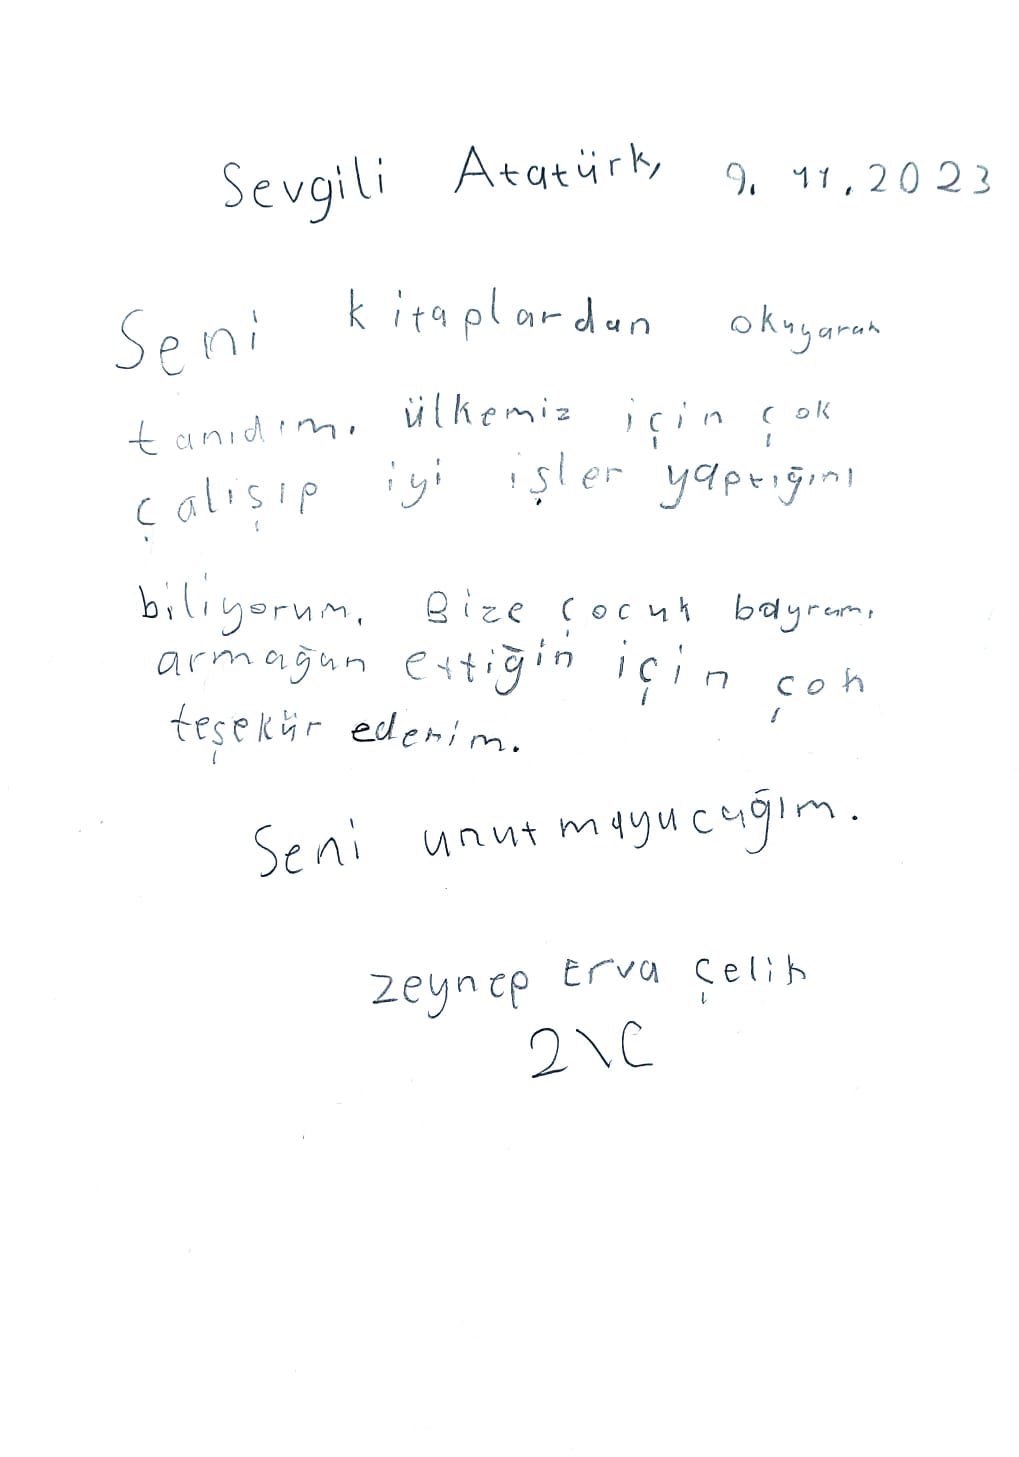 Sevgili Atatürk, 9.11.2023
Seni kitaplardan okuyarak
tanıdım. ülkemiz için çok
çalışıp iyi işler yaptığını
biliyorum. Bize çocuk bayramı
armağan ettiğin için çok
teşekür ederim.
Seni unutmayucağım.
Zeynep Erva Çelik
2\C